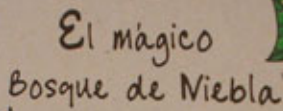 El mágico
Bosque de Niebla